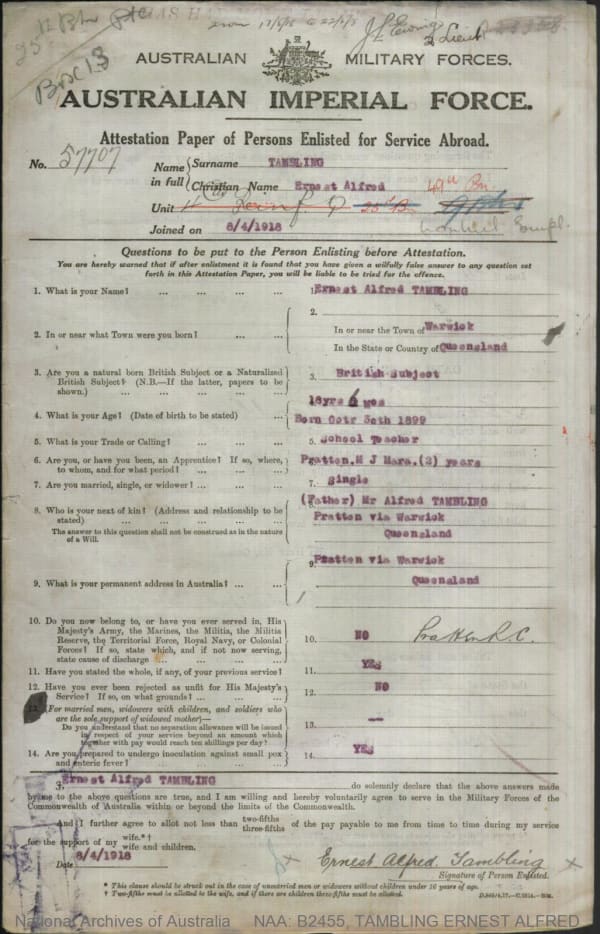 25th Btn
Box 13
J L Ewing
2 Lieut
AUSTRALIAN MILITARY FORCES.
AUSTRALIAN IMPERIAL FORCE.
Attestation Paper of Persons Enlisted for Service Abroad.
No. 57707
Name in full
Surname TAMBLING
Christian Name Ernest Alfred
49th Bn.
Unit 25th Bn
Joined on 8/4/1918
Questions to be put to the Person Enlisting before Attestation.
You are hereby warned that if after enlistment it is found that you have given a wilfully false answer to any question set
forth in this Attestation Paper, you will be liable to be tried for the offence.
1. What is your Name? ... ... ... ... 1. Ernest Alfred TAMBLING
2. In or near what Town were you born? ... ...
2.
In or near the Town of Warwick
In the State or Country of Queensland
3. Are you a natural born British Subject or a Naturalized
British Subject? (N.B.—If the latter, papers to be
shown.) ... ... ... ...
3. British Subject
4. What is your Age? (Date of birth to be stated) ...
18yrs 6 mos
Born Octr 30th 1899
5. What is your Trade or Calling? ... ... ... 5. School Teacher
6. Are you, or have you been, an Apprentice? If so, where,
to whom, and for what period? ... ... ...
Pratten. M J Mara. (2) years
7. Are you married, single, or widower? ... ... ... 7. Single
8. Who is your next of kin? (Address and relationship to be
stated) ... ... ... ... ...
The answer to this question shall not be construed as in the nature
of a Will.
(Father) Mr Alfred TAMBLING
Pratten via Warwick
Queensland
9. What is your permanent address in Australia? ... ...
9. Pratten via Warwick
Queensland
10. Do you now belong to, or have you ever served in, His
Majesty's Army, the Marines, the Militia, the Militia
Reserve, the Territorial Force, Royal Navy, or Colonial
Forces? If so, state which, and if not now serving,
state cause of discharge ... ... ...
10. NO Pratten R.C.
11. Have you stated the whole, if any, of your previous service? 11. YES
12. Have you ever been rejected as unfit for His Majesty's
Service? If so, on what grounds? ... ...
12. NO
13. (For married men, widowers with children, and soldiers who
are the sole support of widowed mother)—
Do you understand that no separation allowance will be issued
in respect of your service beyond an amount which
together with pay would reach ten shillings per day?
13. --
14. Are you prepared to undergo inoculation against small pox
and enteric fever? ... ... ... ...
14. YES
I, Ernest Alfred TAMBLING do solemnly declare that the above answers made
by me to the above questions are true, and I am willing and hereby voluntarily agree to serve in the Military Forces of the
Commonwealth of Australia within or beyond the limits of the Commonwealth.
And I further agree to allot not less than two-fifths three-fifths of the pay payable to me from time to time during my service
for the support of my wife.*† wife and children.
Date 8/4/1918
x Ernest Alfred Tambling x
Signature of Person Enlisted.
* This clause should be struck out in the case of unmarried men or widowers without children under 16 years of age.
† Two-fifths must be allotted to the wife, and if there are children three-fifths must be allotted.
National Archives of Australia NAA: B2455, TAMBLING ERNEST ALFRED